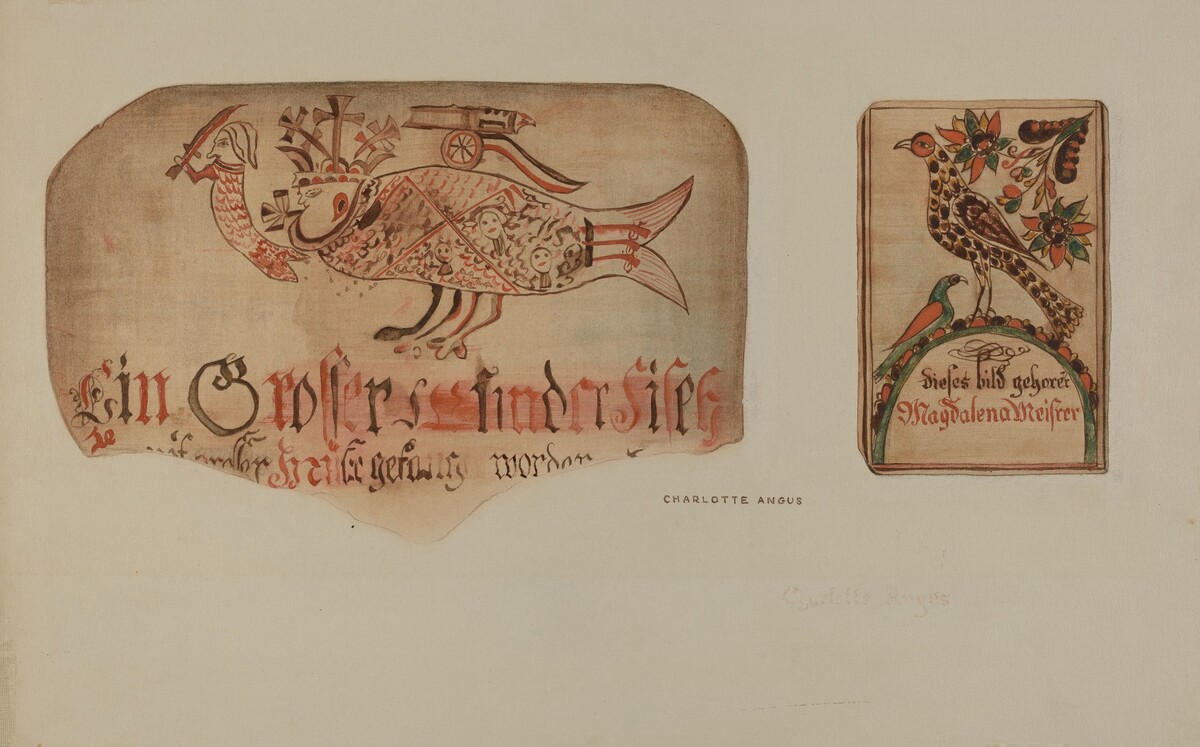 Ein Grosser Fisch
mit grosser worden
dieses bild gehoret
Magdalena Meister
CHARLOTTE ANGUS
Charlotte Angus